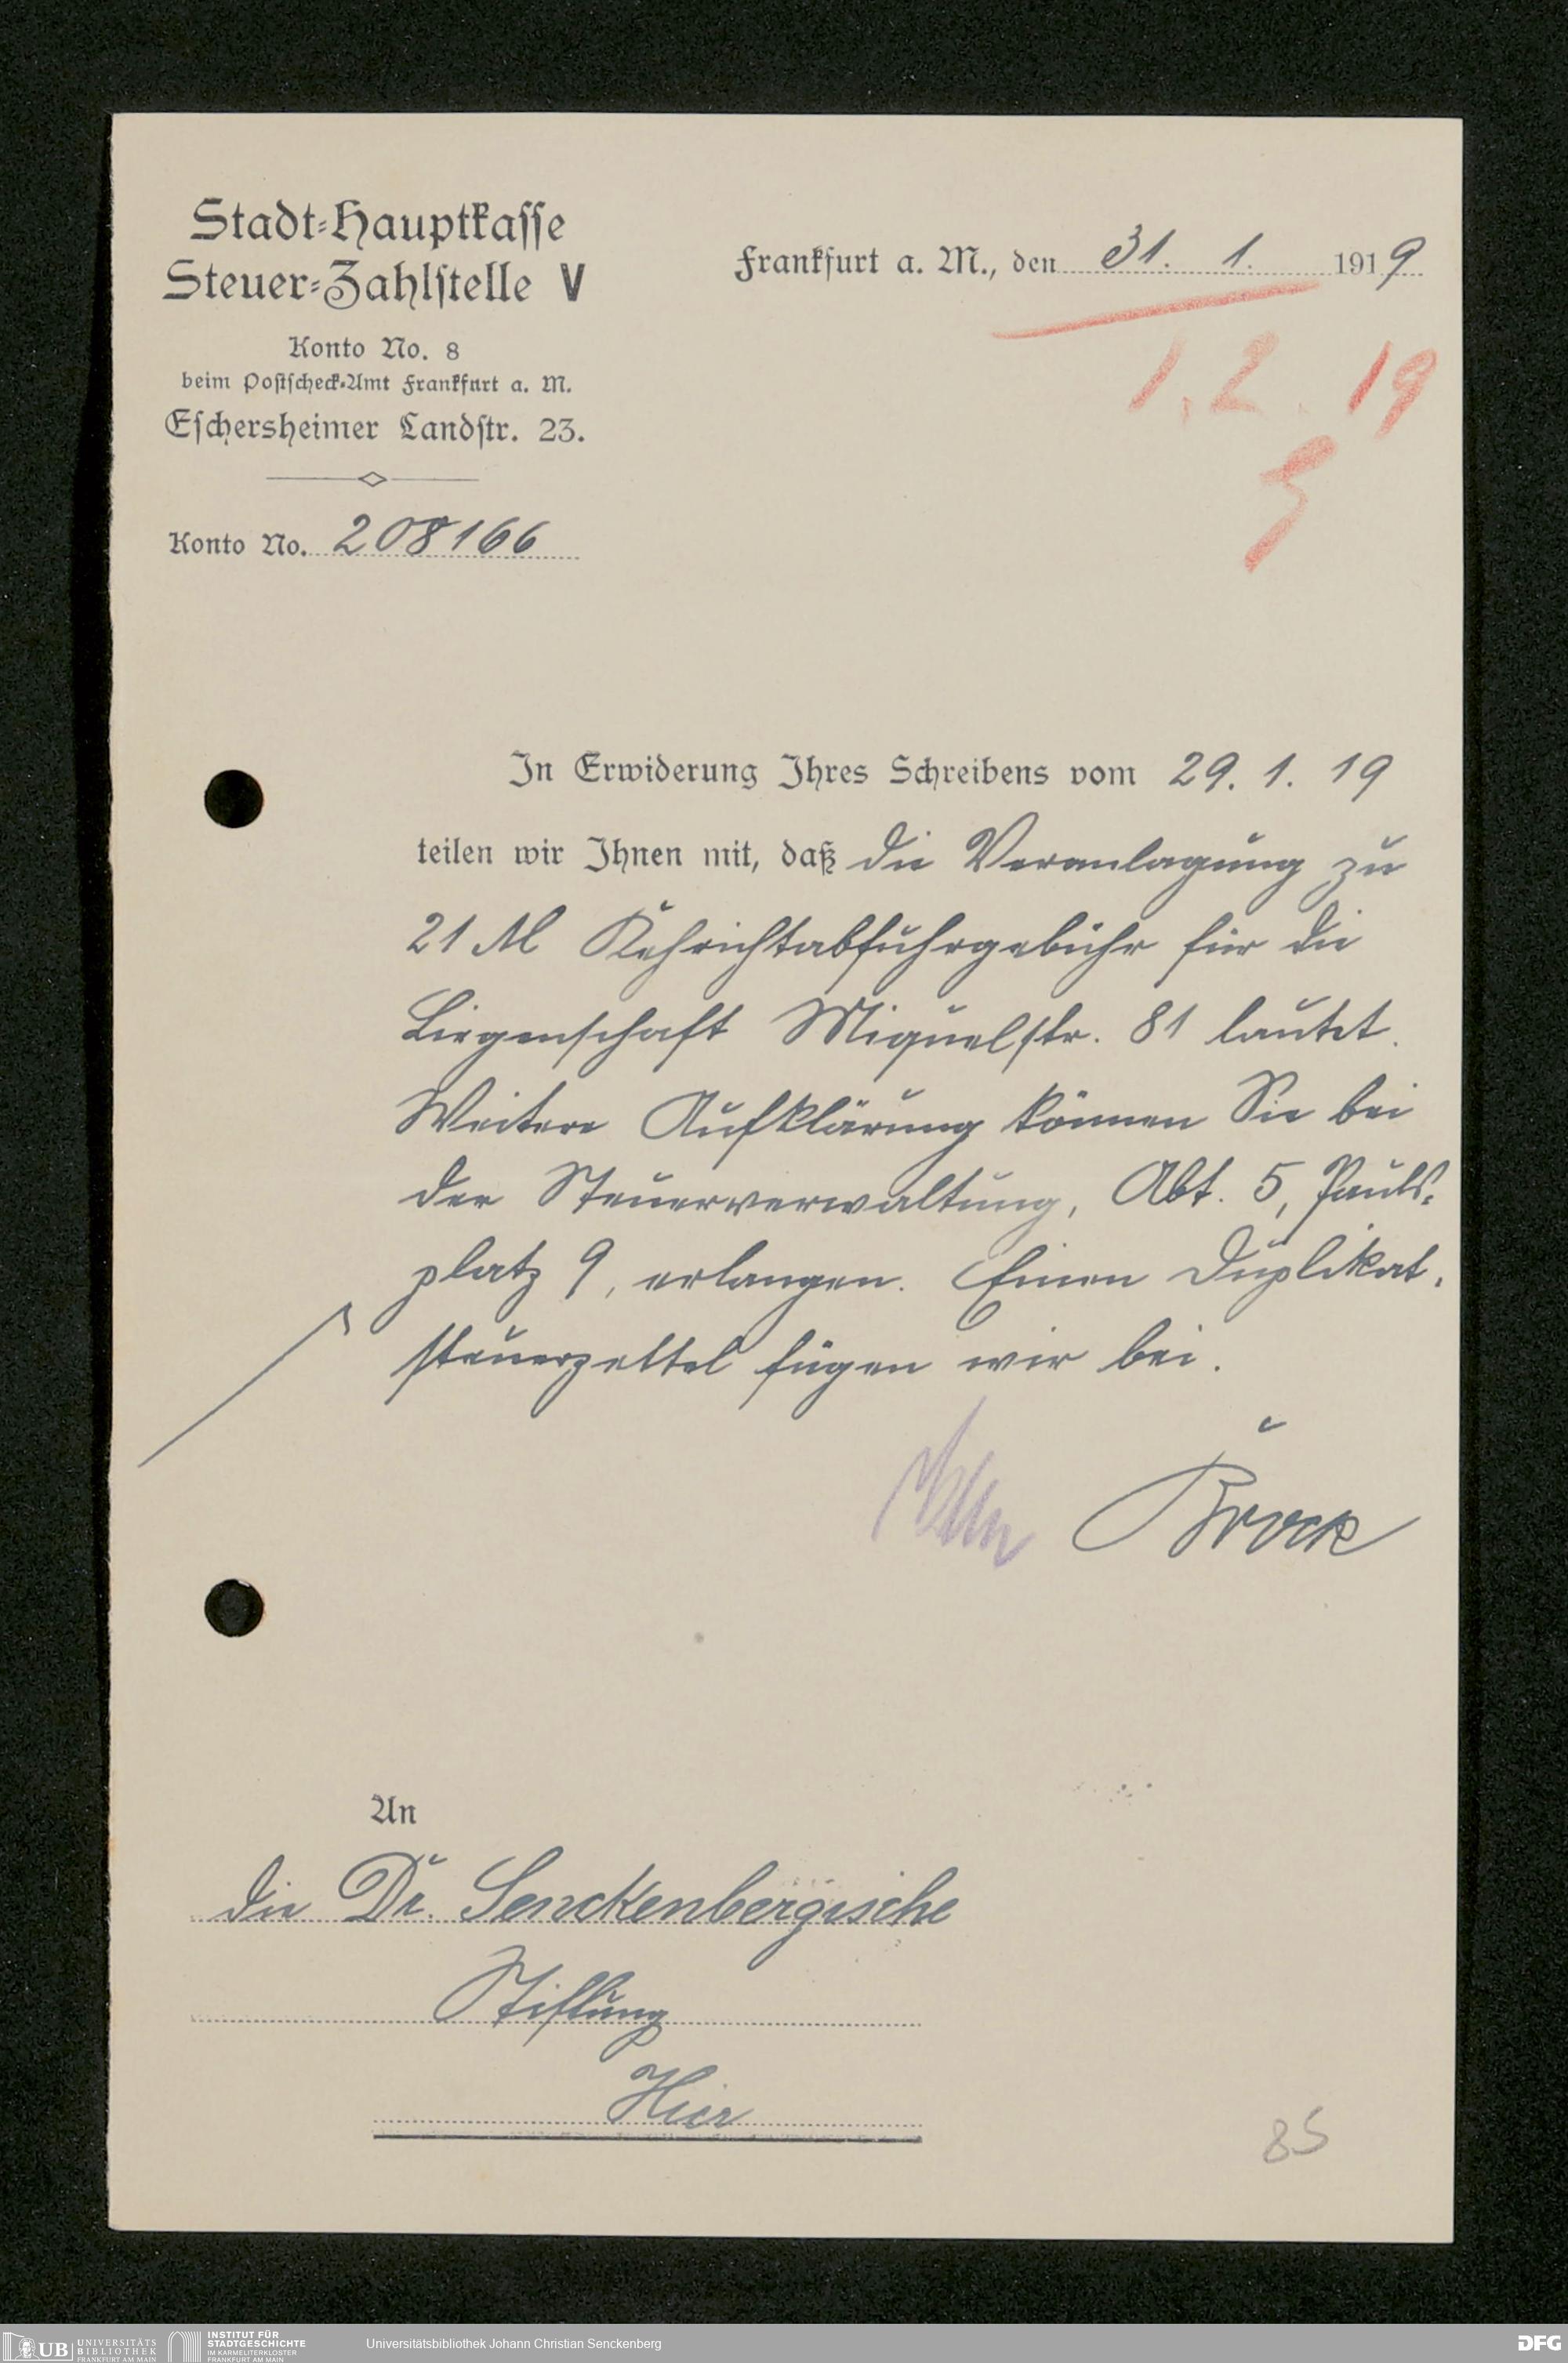 Stadt-Hauptkasse
Steuer-Zahlstelle V
Konto No. 8
beim Postscheck-Amt Frankfurt a. M.
Eschersheimer Landstr. 23.
Konto No. 208166
Frankfurt a. M., den 31. 1. 1919
1. 2. 19
In Erwiderung Ihres Schreibens vom 29. 1. 19
teilen wir Ihnen mit, daß die Veranlagung zu
21 M Kehrichtabfuhrgebühr für die
Liegenschaft Miquelstr. 81 lautet.
Weitere Aufklärung können Sie bei
der Steuerverwaltung, Abt. 5, Pauls-
platz 9, erlangen. Einen Duplikat-
steuerzettel fügen wir bei.
Brock
An
die Dr. Senckenbergische
Stiftung
Hier
85
UB UNIVERSITÄTS
BIBLIOTHEK
FRANKFURT AM MAIN
INSTITUT FÜR
STADTGESCHICHTE
IM KARMELITERKLOSTER
FRANKFURT AM MAIN
Universitätsbibliothek Johann Christian Senckenberg
DFG